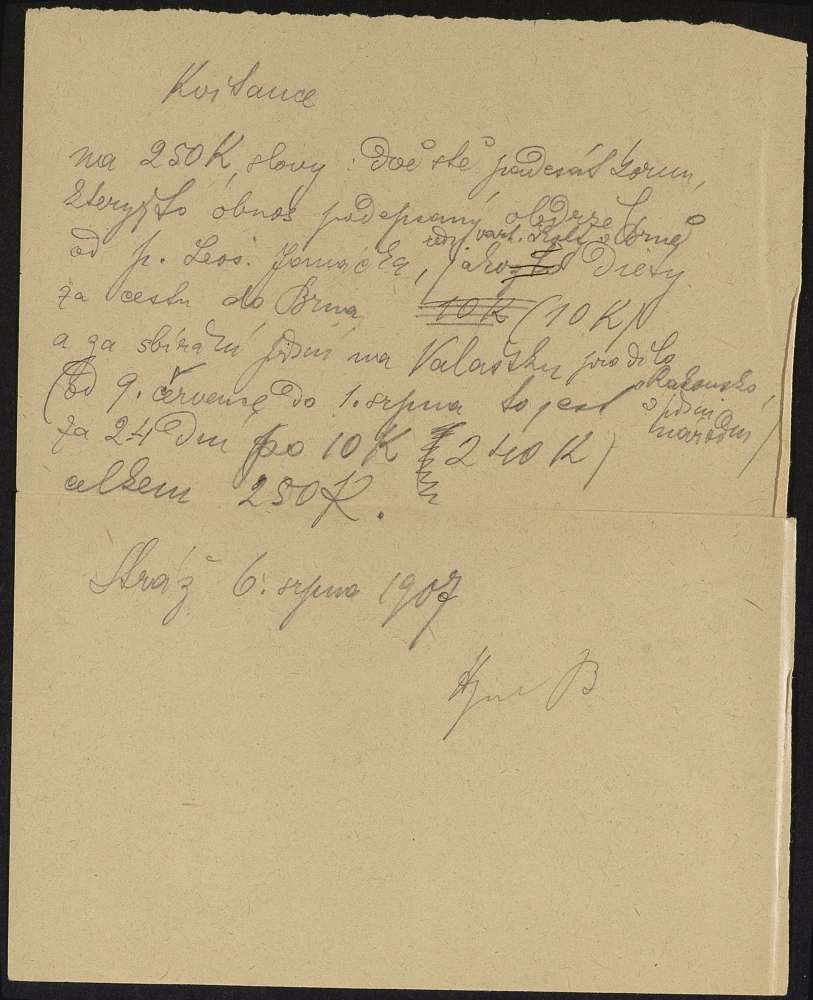 Kvitance
na 250 K, slovy: dvě stě padesát korun,
kterýžto obnos podepsaný obdržel
od p. Leoš. Janáčka, řed. varh. školy v Brně
jakožto diety
za cestu do Brna 10 K (10 K)
a za sbírání písní na Valašsku pro dílo
„Rakousko v písni národní“
(od 9. července do 1. srpna to jest
za 24 dní po 10 K 240 K)
celkem 250 K.
Stráž 6. srpna 1907